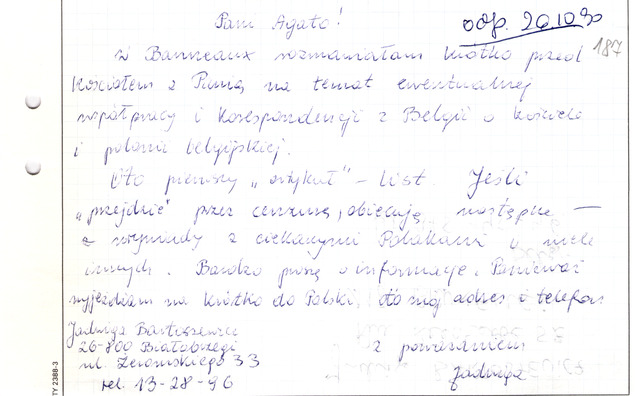 Pani Agato!
odp. 26.10.90
187
W Banneaux rozmawiałam krótko przed
kościołem z Panią na temat ewentualnej
współpracy i korespondencji z Belgii o kościele
i polonii belgijskiej.
Oto pierwszy „artykuł” – list. Jeśli
„przejdzie” przez cenzurę, obiecuję następne –
z wywiady z ciekawymi Polakami i wiele
innych. Bardzo proszę o informację. Ponieważ
wyjeżdżam na krótko do Polski, oto mój adres i telefon
Jadwiga Bartuszewicz
26-800 Białobrzegi
ul. Żeromskiego 33
tel. 13-28-96
z poważaniem
Jadwiga
TY 2388-3